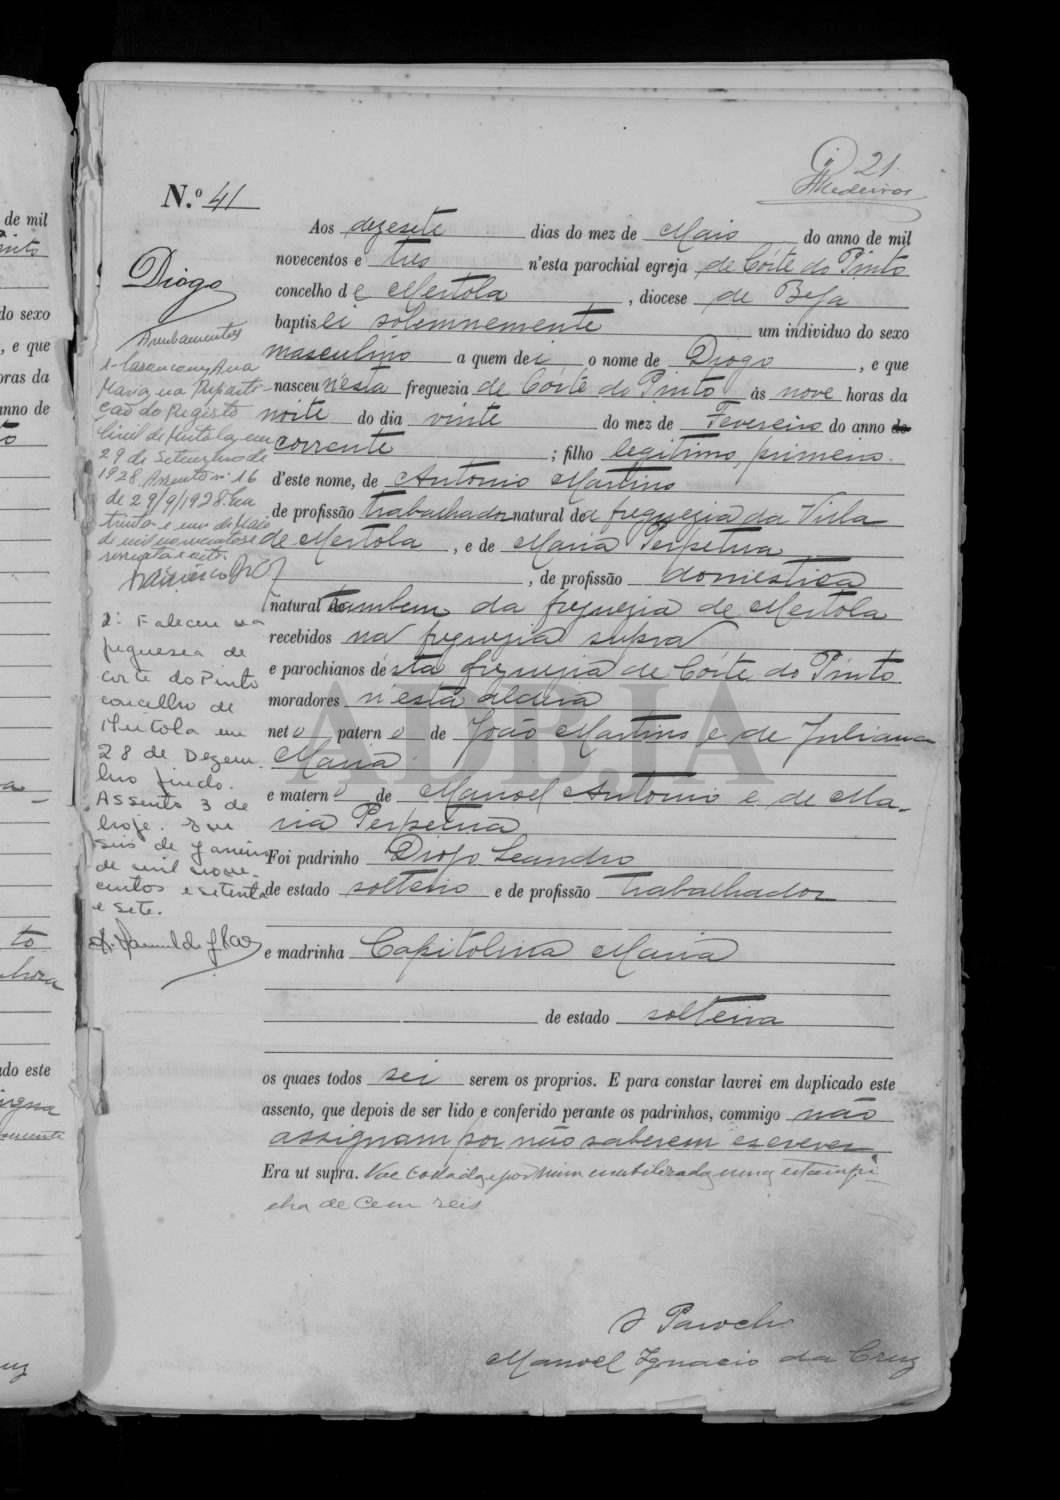 21.
Medeiros
N.º 41
Diogo
Aos dezesete dias do mez de Maio do anno de mil
novecentos e tres n'esta parochial egreja de Córte do Pinto
concelho de Mertola, diocese de Beja
baptisei solemnemente um individuo do sexo
masculino a quem dei o nome de Diogo, e que
nasceu n'esta freguezia de Córte do Pinto ás nove horas da
noite do dia vinte do mez de Fevereiro do anno do
corrente; filho legitimo, primeiro
d'este nome, de Antonio Martins
de profissão trabalhador natural da freguezia da Villa
de Mertola, e de Maria Perpetua
, de profissão domestica
natural tambem da freguezia de Mertola
recebidos na freguezia supra
e parochianos désta freguezia de Córte do Pinto
moradores n'esta aldeia
neto paterno de João Martins e de Juliana
Maria
e materno de Manoel Antonio e de Ma-
ria Perpetua
Foi padrinho Diogo Leandro
de estado solteiro e de profissão trabalhador
e madrinha Capitolina Maria
de estado solteira
os quaes todos sei serem os proprios. E para constar lavrei em duplicado este
assento, que depois de ser lido e conferido perante os padrinhos, commigo não
assignam por não saberem escrever.
Era ut supra. Vae collada e por mim inutilizada uma estampi-
lha de cem reis
O Parocho
Manoel Ignacio da Cruz
Averbamentos
1- Casou com Ana
Maria, na Reparti-
ção do Registo
Civil de Mertola, em
29 de Setembro de
1928. Assento nº 16
de 29/9/1928. Em
trinta e um de Maio
de mil novecentos e
sessenta e oito.
2: Faleceu na
freguesia de
Corte do Pinto
concelho de
Mértola em
28 de Dezem-
bro findo.
Assento 3 de
hoje. Em
seis de Janeiro
de mil nove-
centos e setenta
e sete.
de mil
Pinto
do sexo
, e que
oras da
anno de
to
a
to
ado este
ADBJA